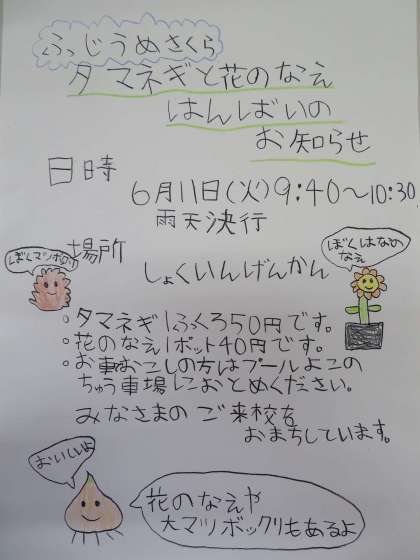 ふっじうめさくら
タマネギと花のなえ
はんばいの
お知らせ
日時
6月11日(火)9:40〜10:30
雨天決行
場所
ぼくマツボックリ
ぼくはなの
なえ
しょくいんげんかん
・タマネギ1ふくろ50円です。
・花のなえ1ポット40円です。
・お車おこしの方はプールよこの
ちゅう車場におとめください。
みなさまのご来校を
おまちしています。
おいしいよ
花のなえや
大マツボックリもあるよ